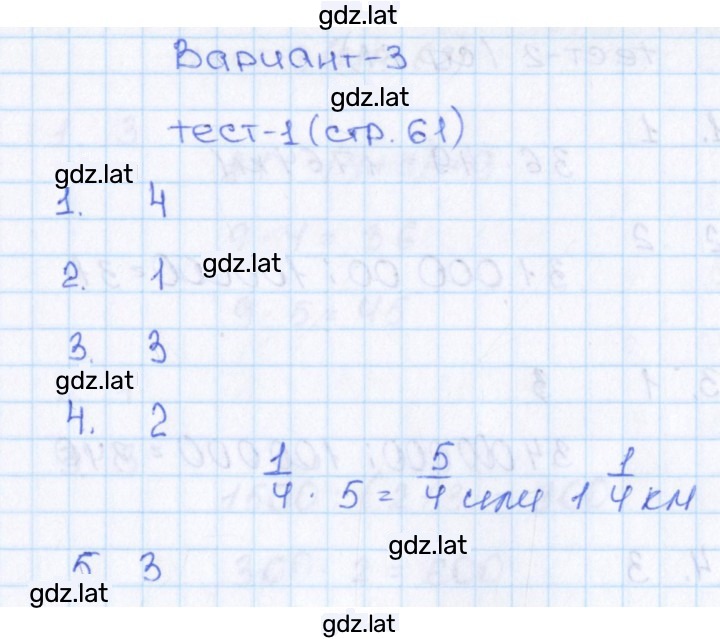 gdz.lat
Вариант-3
gdz.lat
тест-1 (стр. 61)
gdz.lat
1. 4
2. 1 gdz.lat
3. 3
gdz.lat
4. 2
1/4 · 5 = 5/4 или 1 1/4 км
gdz.lat
5 3
gdz.lat
gdz.lat